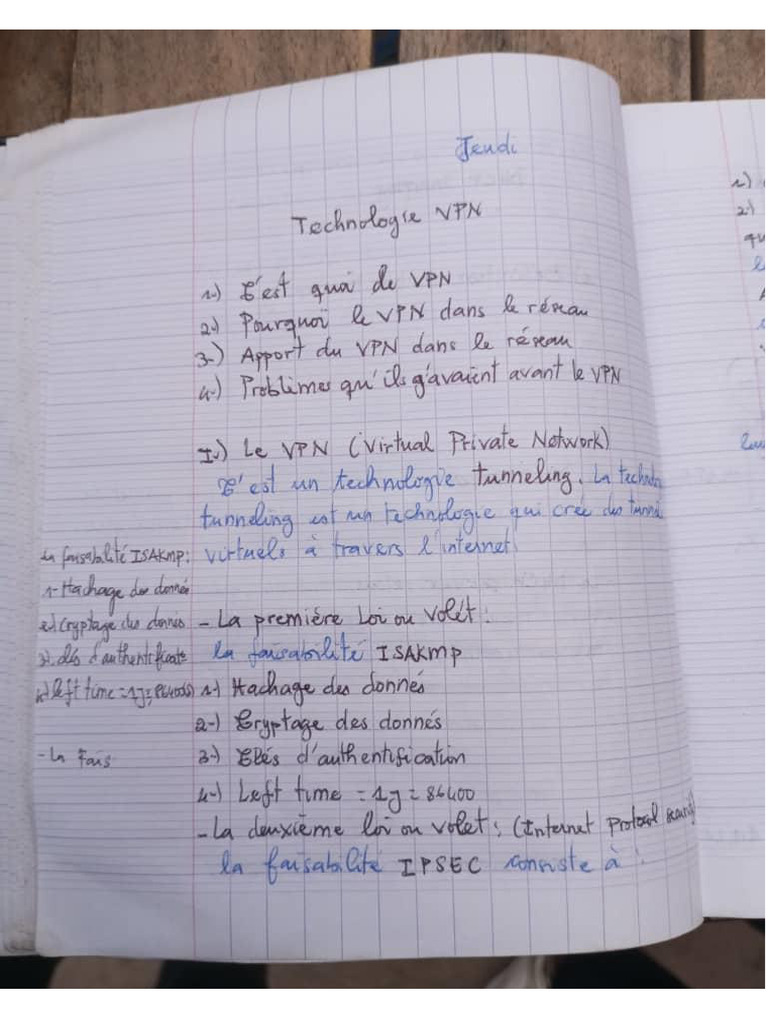 Jeudi
Technologie VPN
1-) C'est quoi de VPN
2-) Pourquoi le VPN dans le réseau
3-) Apport du VPN dans le réseau
4-) Problèmes qu'ils g'avaient avant le VPN
I-) Le VPN (Virtual Private Network)
C'est un technologie tunneling. La
tunneling est un technologie qui crée des
virtuels à travers l'internet.
- La première Loi ou Volét :
la faisabilité ISAKMP
1-) Hachage des donnés
2-) Cryptage des donnés
3-) Clés d'authentification
4-) Left time = 1j = 86400
- La deuxième loi ou volet : (Internet Protocol
la faisabilité IPSEC consiste à :
la faisabilité ISAKMP:
1- Hachage des donnés
2-) Cryptage des donnés
3-) clés d'authentificate
4-) left time = 1j =
- la Fais
1-)
2-)